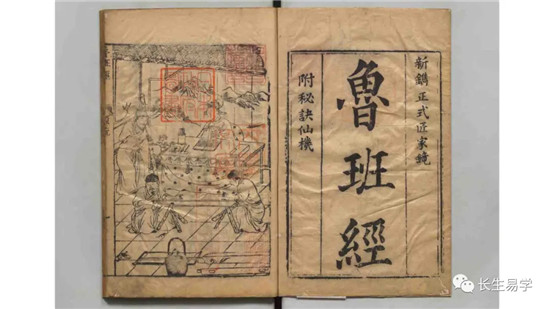 新鐫正式匠家鏡
魯班經
附秘訣仙機
长生易学